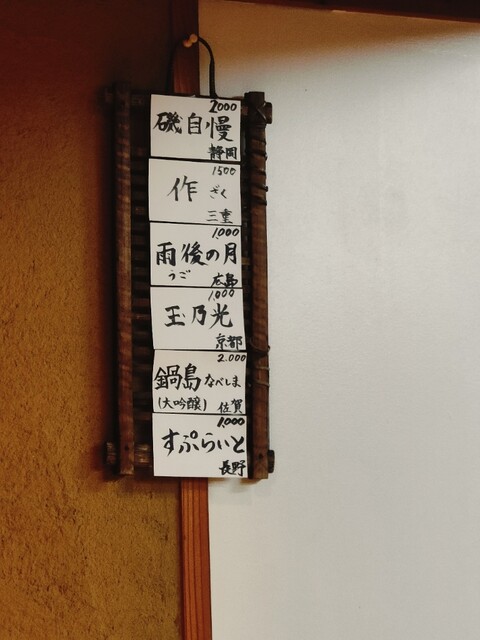 2000
磯自慢
静岡
1500
作 ざく
三重
1,000
雨後の月
うご 広島
1,000
玉乃光
京都
2.000
鍋島 なべしま
(大吟醸) 佐賀
1,000
すぷらいと
長野